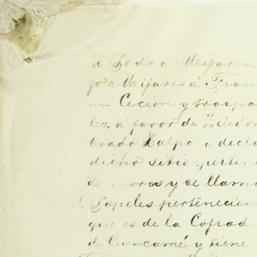 á Pedro Mijares
jo Mijares á Fran
un Cecion y traspa
lez á favor de Zeledon
brado Calpa o decla
dicho sitio pertene
de moros y se llama
Papeles pertenecien
que es de la Cofrad
de Cuencamé y tiene